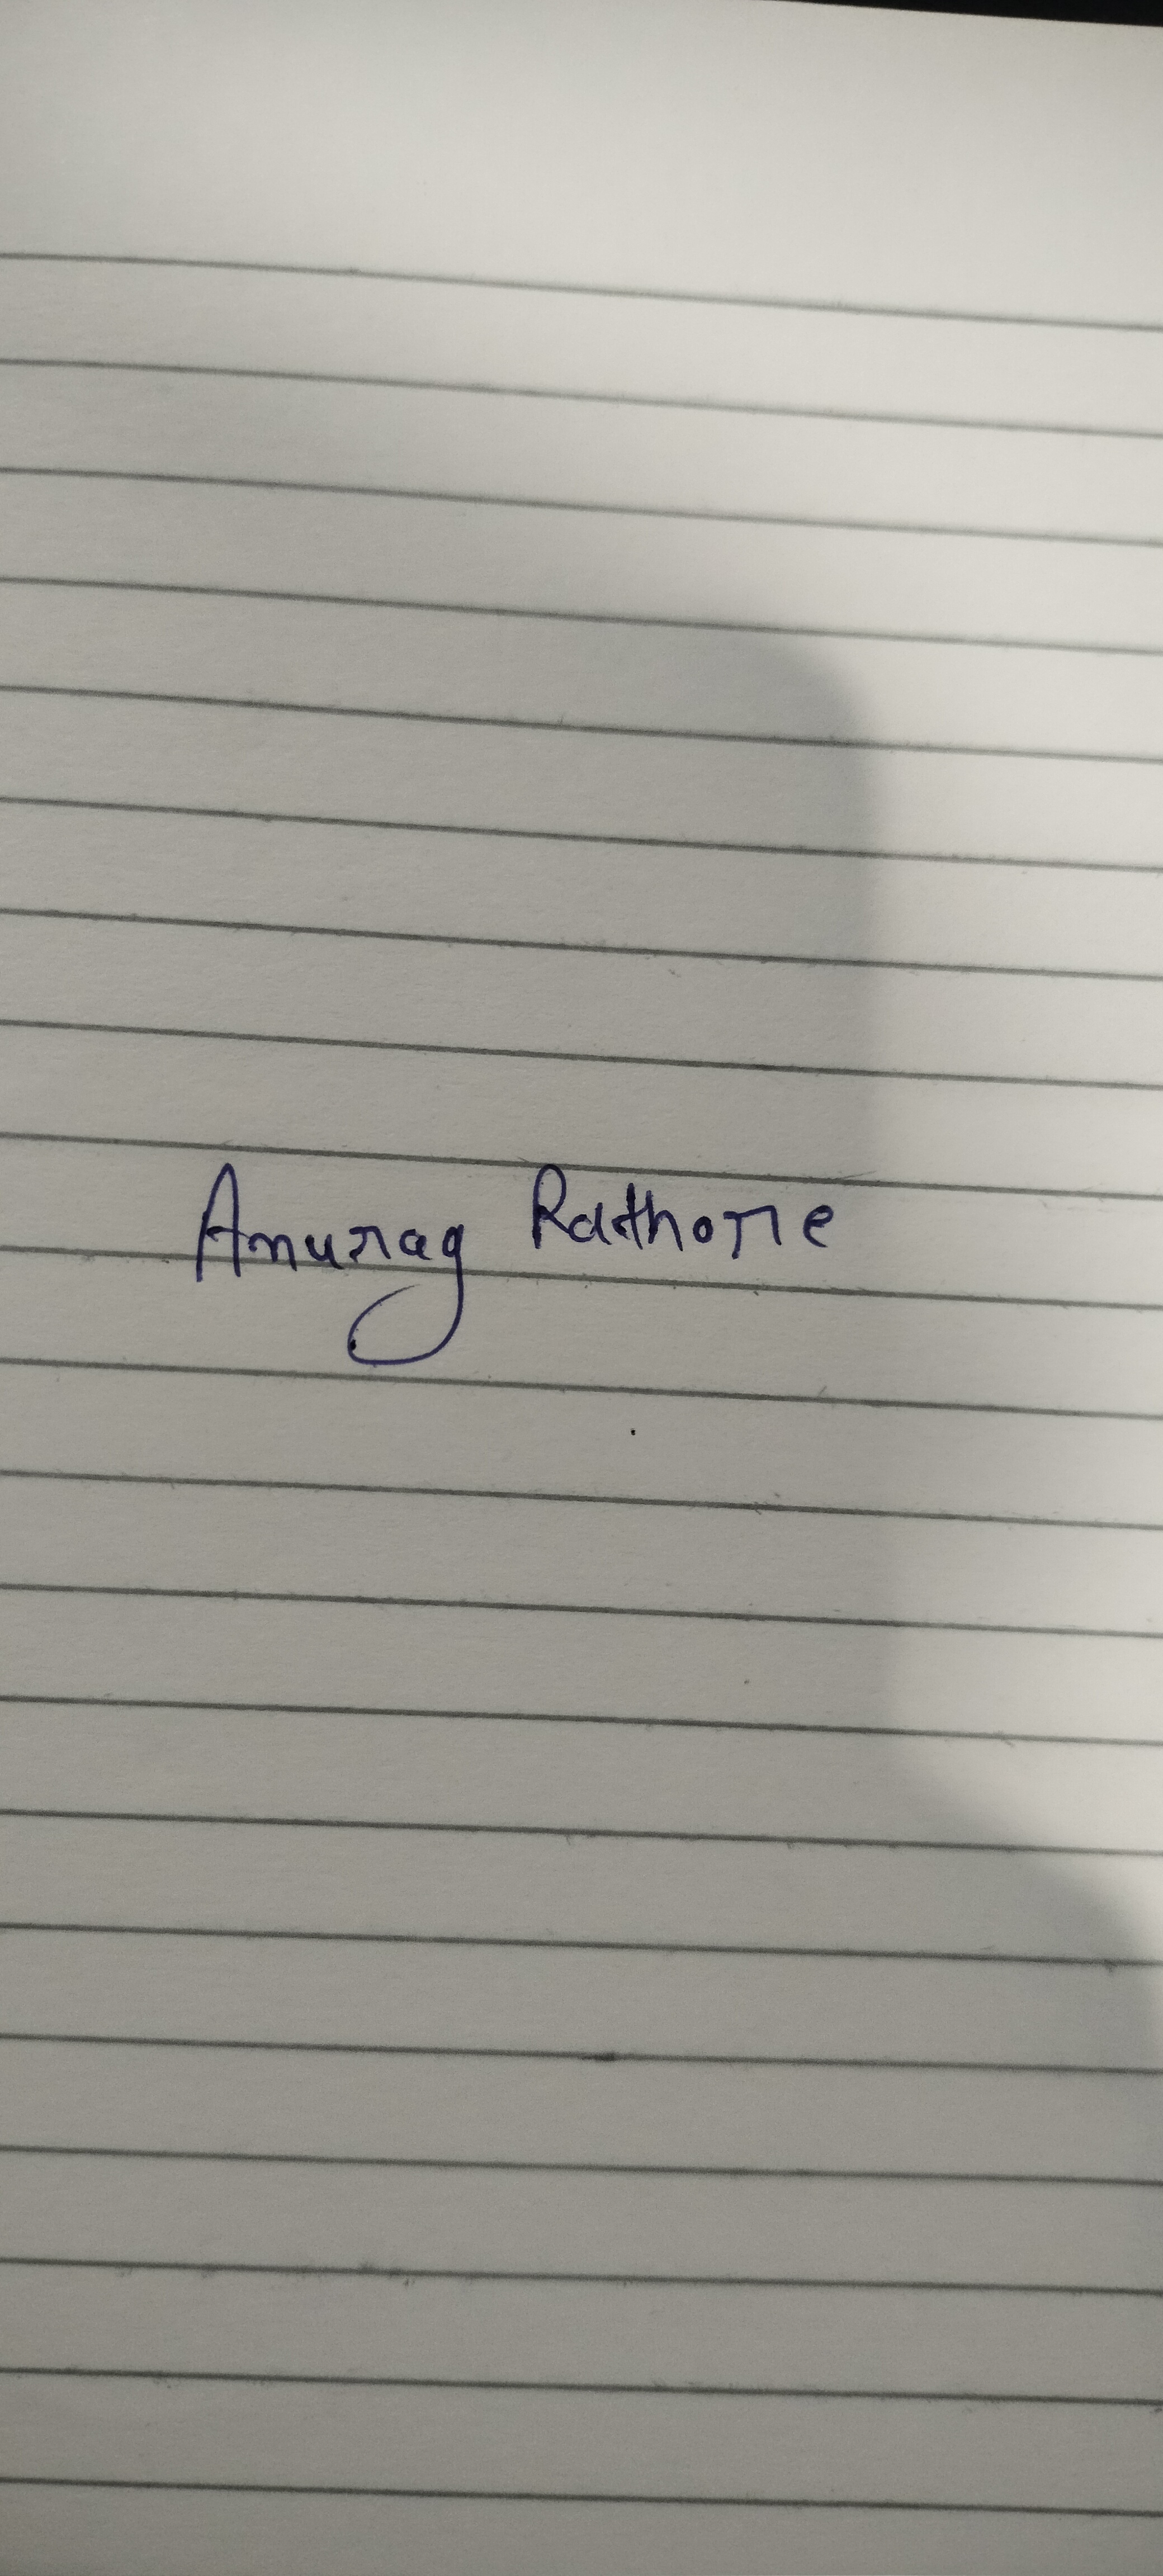 Anurag Rathore